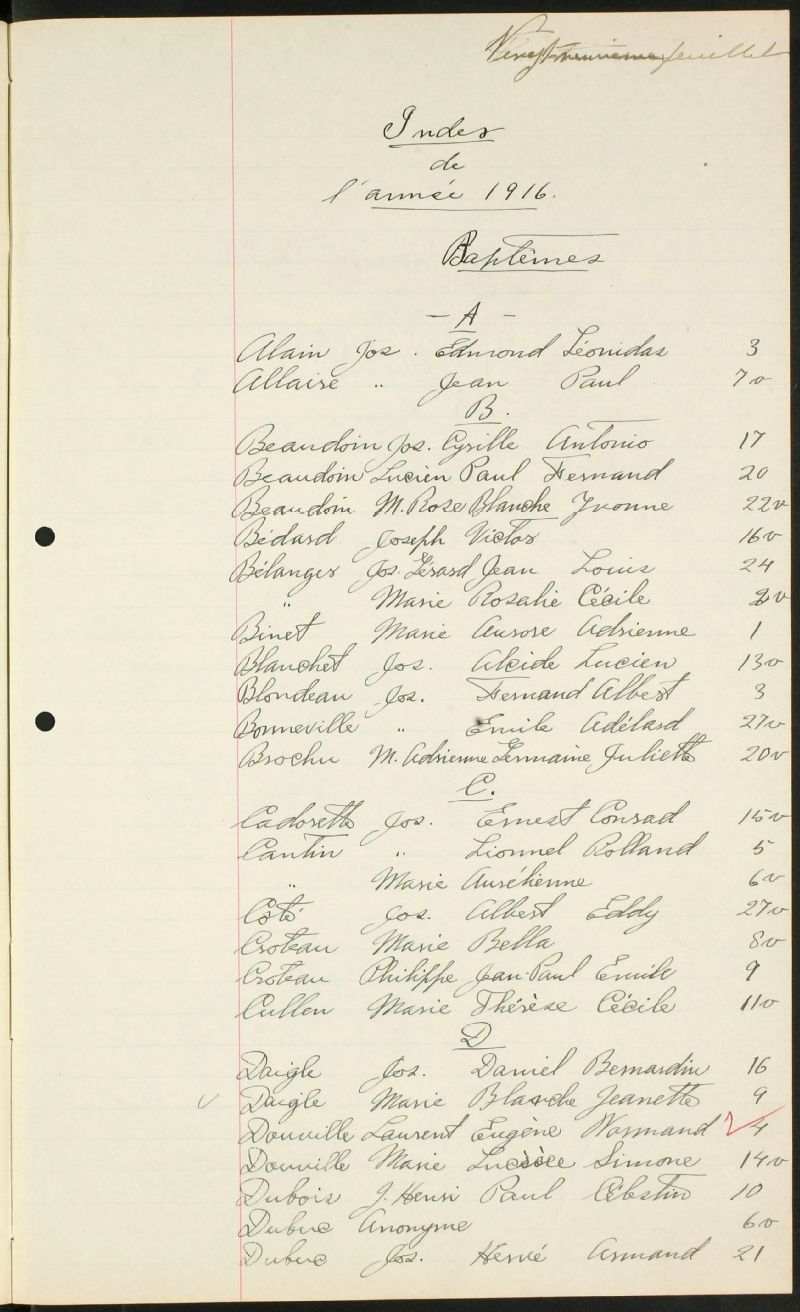 feuillet
Index
de
l'année 1916.
Baptêmes
- A -
Alain Jos. Edmond Léonidas 3
Allaire " Jean Paul 7v
B.
Beaudoin Jos. Cyrille Antonio 17
Beaudoin Lucien Paul Fernand 20
Beaudoin M. Rose Blanche Yvonne 22v
Bédard Joseph Victor 16v
Bélanger Jos. Gérard Jean Louis 24
" Marie Rosalie Cécile
Binet Marie Aurore Adrienne 1
Blanchet Jos. Alcide Lucien 13v
Blondeau Jos. Fernand Albert 3
Bonneville " Emile Adélard 27v
Brochu M. Adrienne Germaine Juliette 20v
C.
Cadorette Jos. Ernest Conrad 15v
Cantin " Lionnel Rolland 5
" Marie Aurélienne 6v
Côté Jos. Albert Eddy 27v
Croteau Marie Bella 8v
Croteau Philippe Jean-Paul Emile 9
Cullen Marie Thérèse Cécile 11v
D
Daigle Jos. Daniel Bernardin 16
Daigle Marie Blanche Jeanette 9
Douville Laurent Eugène Normand 4
Douville Marie Simone 14v
Dubois J. Henri Paul Célestin 10
Dubuc Anonyme 6v
Dubuc Jos. Hervé Armand 21